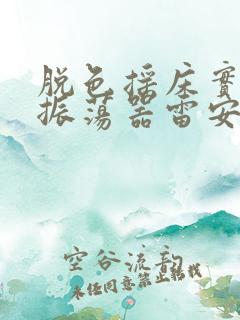 脱色摇床實
振荡器雷安
空谷流韵
未经同意禁止转载